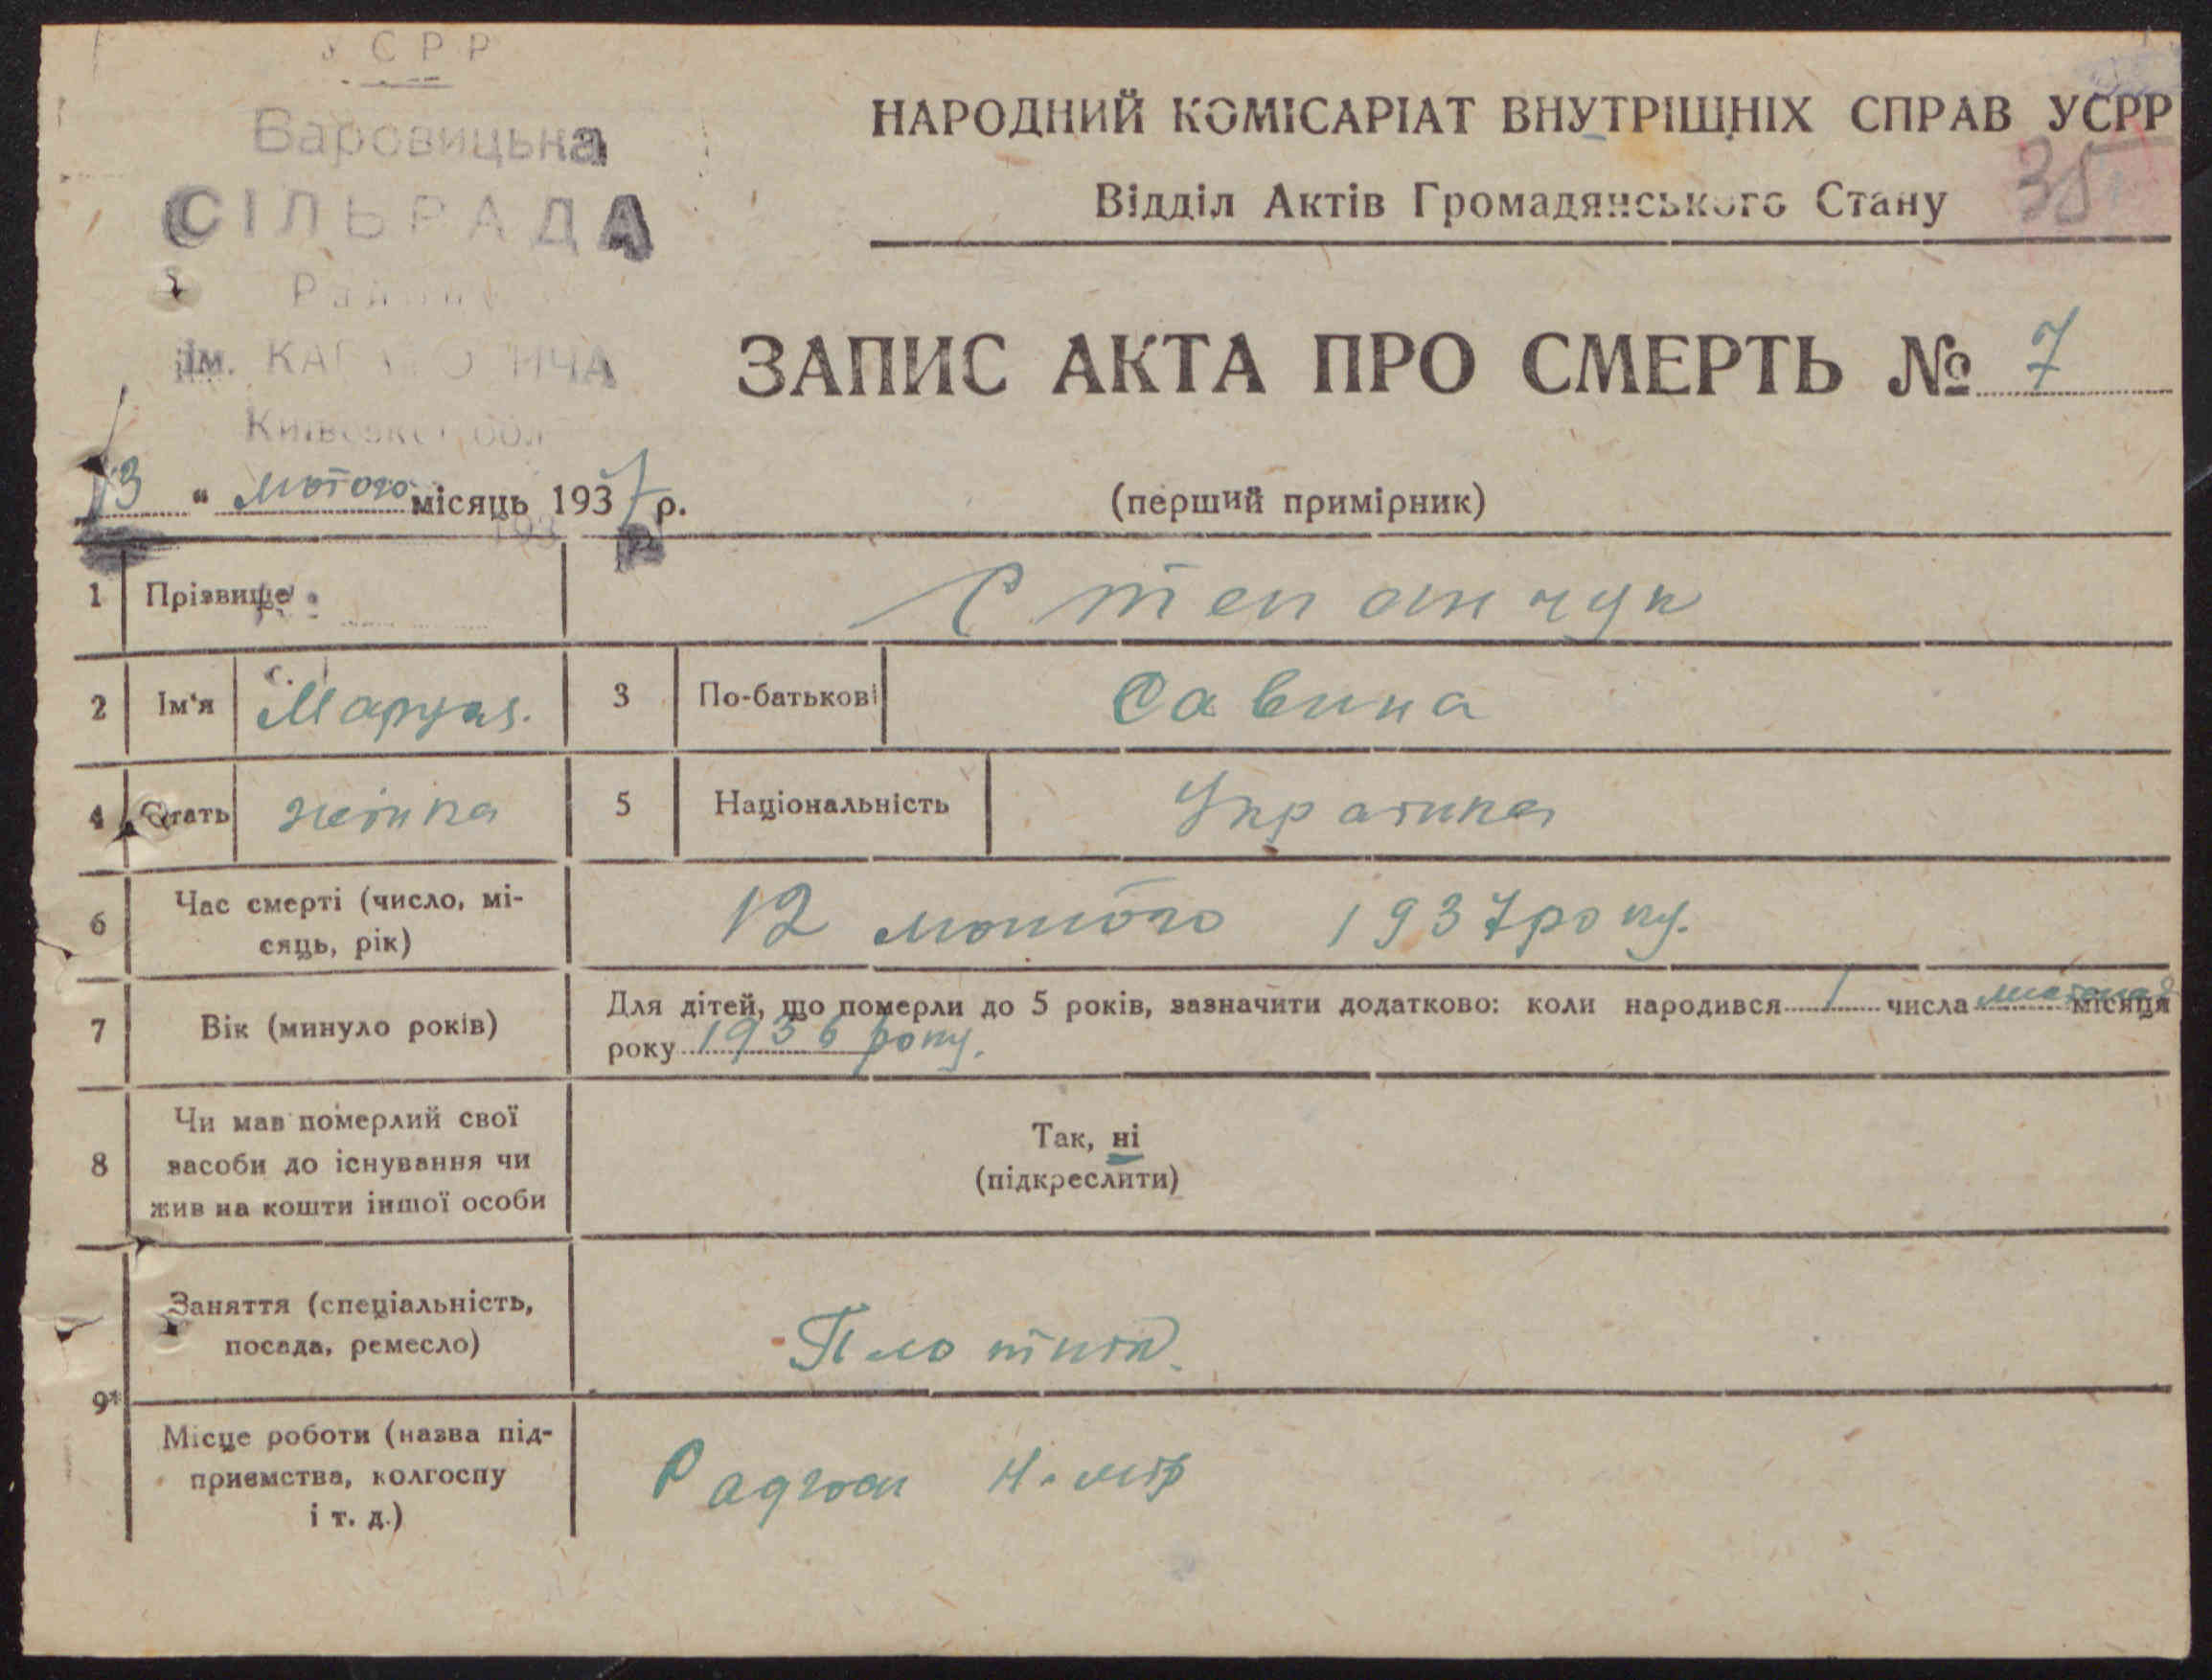 УСРР
Варовицьна
СІЛЬРАДА
ім. КАГАНОВИЧА
Київської обл
НАРОДНИЙ КОМІСАРІАТ ВНУТРІШНІХ СПРАВ УСРР
Відділ Актів Громадянського Стану
ЗАПИС АКТА ПРО СМЕРТЬ № 7
13 " лютого місяць 1937 р.
(перший примірник)
1 Прізвище Степанчук
2 Ім'я Маруся. 3 По-батькові Савина
4 Стать жінка 5 Національність Українка
6 Час смерті (число, мі-
сяць, рік) 12 лютого 1937 року.
7 Вік (минуло років) Для дітей, що померли до 5 років, зазначити додатково: коли народився 1 числа листопад місяця
року 1936 року.
8 Чи мав померлий свої
засоби до існування чи
жив на кошти іншої особи
Так, ні
(підкреслити)
9* Заняття (спеціальність,
посада, ремесло) Плотнік.
Місце роботи (назва під-
приємства, колгоспу
і т. д.) Радгосп